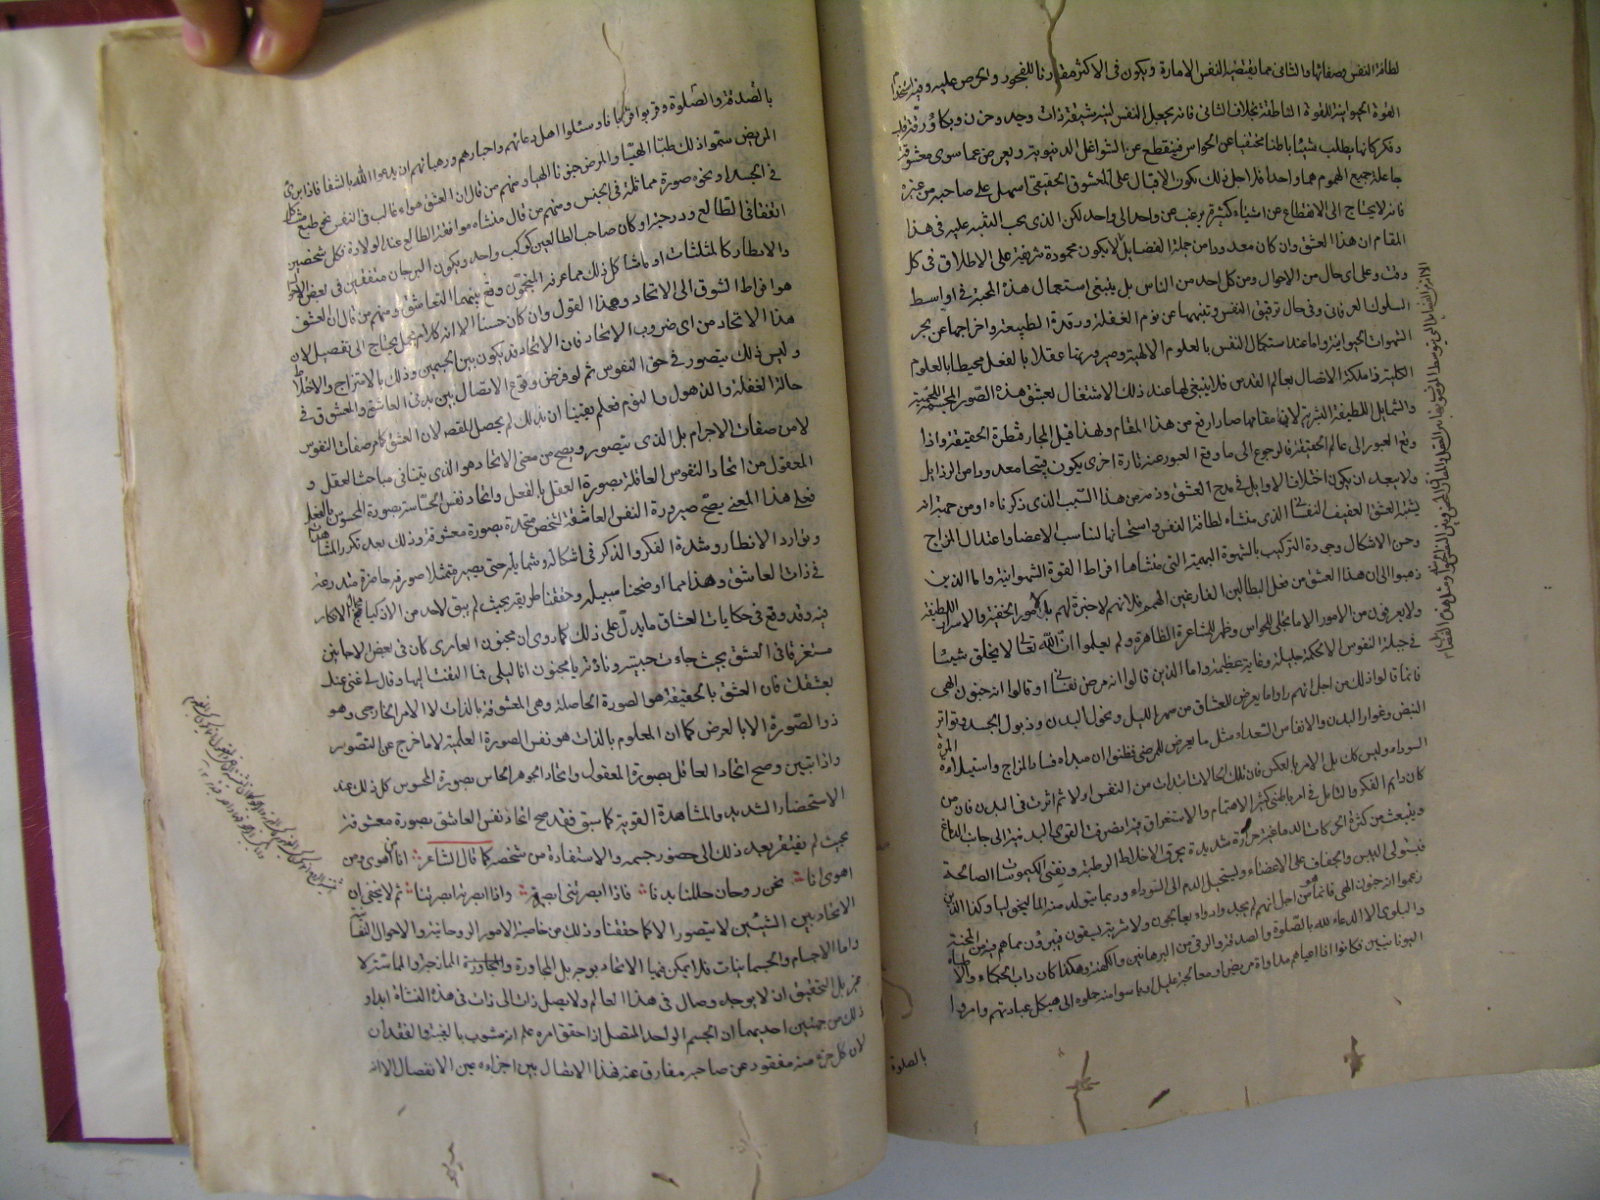 لطافة النفس وصفائها والثانى مما يقتضيه النفس الامارة ويكون فى الاكثر مقارنا للفجور والحرص عليه وفيه استخدام
القوة الحيوانية للقوة الناطقة بخلاف الثانى فانه يجعل النفس لينة شيقة ذات وجد وحزن وبكاء ورقة قلب
وفكر كانها يطلب شيئا باطنا مختفيا عن الحواس فينقطع عن الشواغل الدنيوية ويعرض عما سوى معشوقه
جاعلة جميع الهموم هما واحدا فلاجل ذلك يكون الاقبال على المعشوق الحقيقى اسهل على صاحبه من غيره
فانه لا يحتاج الى الانقطاع عن اشياء كثيرة بل يرغب عن واحد الى واحد لكن الذى يجب التنبيه عليه فى هذا
المقام ان هذا العشق وان كان معدودا من جملة الفضايل لا يكون محمودة شريفة على الاطلاق فى كل
وقت وعلى اى حال من الاحوال ومن كل احد من الناس بل ينبغى استعمال هذه المحبة فى اواسط
السلوك العرفانى وفى حال ترقيق النفس وتنبيهها عن نوم الغفلة ورقدة الطبيعة واخراجها عن بحر
الشهوات الحيوانية واما عند استكمال النفس بالعلوم الالهية وصيرورتها عقلا بالفعل محيطا بالعلوم
الكلية ذا ملكة الاتصال بعالم القدس فلا ينبغى لها عند ذلك الاشتغال بعشق هذه الصور المحسنة اللحمية
والشمايل اللطيفة البشرية لان مقامها صار ارفع من هذا المقام ولهذا قيل المجاز قنطرة الحقيقة واذا
وقع العبور الى عالم الحقيقة فالرجوع الى ما وقع العبور عنه تارة اخرى يكون قبيحا معدودا من الرذايل
ولا يبعد ان يكون اختلاف الاوايل فى مدح العشق وذمه من هذا السبب الذى ذكرناه او من جهة انه
يشتبه العشق العفيف النفسانى الذى منشاه لطافة النفس واستحسانها لتناسب الاعضا واعتدال المزاج
وحسن الاشكال وجودة التركيب بالشهوة البهيمية التى منشاها افراط القوة الشهوانية واما الذين
ذهبوا الى ان هذا العشق من فعل البطالين الفارغين الهمم فلانهم لا خبرة لهم بالامور الخفية والاسرار اللطيفة
ولا يعرفون من الامور الا ما يجلى للحواس وظهر للمشاعر الظاهرة ولم يعلموا ان الله تعالى لا يخلق شيئا
فى جبلة النفوس الا لحكمة جليلة وغاية عظيمة واما الذين قالوا انه مرض نفسانى او قالوا انه جنون الهى
فانما قالوا ذلك من اجل انهم راوا ما يعرض للعشاق من سهر الليل ونحول البدن وذبول الجسد وتواتر
النبض وغوار البدن والانفاس الصعداء مثل ما يعرض للمرضى فظنوا ان مبداه فساد المزاج واستيلاء المرة
السوداء وليس كك بل الامر بالعكس فان تلك الحالات ابتدات من النفس اولا ثم اثرت فى البدن فان من
كان دايم الفكر والتامل فى امر باطنى كثير الاهتمام والاستغراق فيه انصرفت القوى البدنية الى جانب الدماغ
وينبعث من كثرة الحركات الدماغية حرارة شديدة يحرق الاخلاط الرطبة ويفنى الكيموسات الصالحة
فيستولى اليبس والجفاف على الاعضاء ويستحيل الدم الى السوداء وربما يتولد منه الماليخوليا وكذا الذين
زعموا انه جنون الهى فانما قالوا من اجل انهم لم يجدوا دواء يعالجون ولا شربة يسقون فيبرؤن مما هم فيه من المحنة
والبلوى الا الدعاء لله بالصلوة والصدقة والرقى من البرهانين والكهنة وهكذا كان داب الحكماء والاطباء
اليونانيين فكانوا اذا اعياهم مداواة مريض او معالجة عليل او يئسوا منه حملوه الى هيكل عبادتهم وامروا
بالصلوة
بالصدقة والصلوة وقربوا قربانا وسئلوا اهل دعائهم واحبارهم ورهبانهم ان يدعوا الله بالشفا فاذا برئ
المريض سموا ذلك طبا الهيا والمرض جنونا الهيا ومنهم من قال ان العشق هواء غالب فى النفس نحو طبع مشاكل
فى الجسد او نحو صورة مماثلة فى الجنس ومنهم من قال منشاه موافقة الطالع عند الولادة فكل شخصين
اتفقا فى الطالع ودرجته او كان صاحب الطالعين كوكب واحد ويكون البرجان متفقين فى بعض الاحوال
والانظار كالمثلثات او ما شاكل ذلك مما عرفه المنجمون وقع بينهما التعاشق ومنهم من قال ان العشق
هو افراط الشوق الى الاتحاد وهذا القول وان كان حسنا الا انه كلام مجمل يحتاج الى تفصيل لان
هذا الاتحاد من اى ضروب الاتحاد فان الاتحاد قد يكون بين الجسمين وذلك بالامتزاج والاختلاط
وليس ذلك يتصور فى حق النفوس ثم لو فرض وقوع الاتصال بين بدنى العاشق والمعشوق فى
حالة الغفلة والذهول والنوم فعلم يقينا ان بذلك لم يحصل المقصد لان العشق كما مر صفات النفوس
لا من صفات الاجرام بل الذى يتصور ويصح من معنى الاتحاد هو الذى بينا فى مباحث العقل و
المعقول من اتحاد النفوس العاقلة بصورة العقل بالفعل واتحاد نفس الحساسة بصورة المحسوس بالفعل
فعلى هذا المعنى يصح صيرورة النفس العاشقة لشخص متحدة بصورة معشوقة وذلك بعد تكرر المشاهدات
وتوارد الانظار وشدة الفكر والذكر فى اشكاله وشمايله حتى يصير متمثلا صورته حاضرة مندرجة
فى ذات العاشق وهذا مما اوضحنا سبيله وحققنا طريقه بحيث لم يبق لاحد من الاذكيا مجال الانكار
فيه وقد وقع فى حكايات العشاق ما يدل على ذلك كما روى ان مجنون العامرى كان فى بعض الاحايين
مستغرقا فى العشق بحيث جاءت حبيبته ونادته يا مجنون انا ليلى فما التفت اليها وقال لى غنى عنك
بعشقك فان العشق بالحقيقة هو الصورة الحاصلة وهى المعشوقة بالذات لا الامر الخارجى وهو
ذو الصورة الا بالعرض كما ان المعلوم بالذات هو نفس الصورة العلمية لا ما خرج عن التصور
واذا تبين وصح اتحاد العاقل بصورة المعقول واتحاد الجوهر الحاس بصورة المحسوس كل ذلك عند
الاستحضار الشديد والمشاهدة القوية كما سبق فقد صح اتحاد نفس العاشق بصورة معشوقه
بحيث لم يفتقر بعد ذلك الى حضور جسمه والاستفادة من شخصه كما قال الشاعر انا من اهوى ومن
اهوى انا نحن روحان حللنا بدنا فاذا ابصرتنى ابصرته واذا ابصرته ابصرتنا ثم لا يخفى ان
الاتحاد بين الشيئين لا يتصور الا كما حققنا وذلك من خاصية الامور الروحانية والاحوال النفسانية
واما الاجسام والجسمانيات فلا يمكن فيها الاتحاد بوجه بل المجاورة والممازجة والمماسة لا
غير بل التحقيق ان لا يوجد وصال فى هذا العالم ولا يصل ذات الى ذات فى هذه النشاة ابدا و
ذلك من جهتين احديهما ان الجسم الواحد المتصل اذا حقق امره علم انه مشوب بالغيبة والفقد ان
لان كل جزء منه مفقود عن صاحبه مفارق عنه فهذا الاتصال بين اجزاءه عين الانفصال الا انه